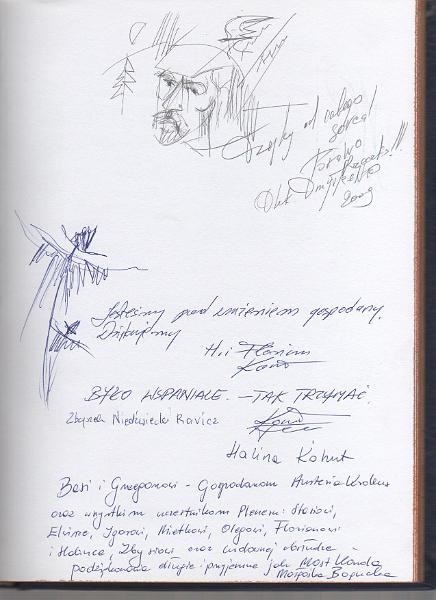 Dzięki od całego
serca!
Brawo
Olek Dmytrenko
2009
Jesteśmy pod wrażeniem gospodarzy.
Dziękujemy
H. i Florian
Kohut
BYŁO WSPANIALE. – TAK TRZYMAĆ.
Zbyszek Niedźwiecki Ravicz
Halina Kohut
Basi i Grzegorzowi - Gospodarzom Austeria Krokus
oraz wszystkim uczestnikom Pleneru: Stasiowi,
Elwirze, Igorowi, Mietkowi, Olegowi, Florianowi
i Halince, Zbysiowi oraz cudownej obsłudze -
podziękowania długie i przyjemne jak MOST Kanda
Małgośka Bogucka